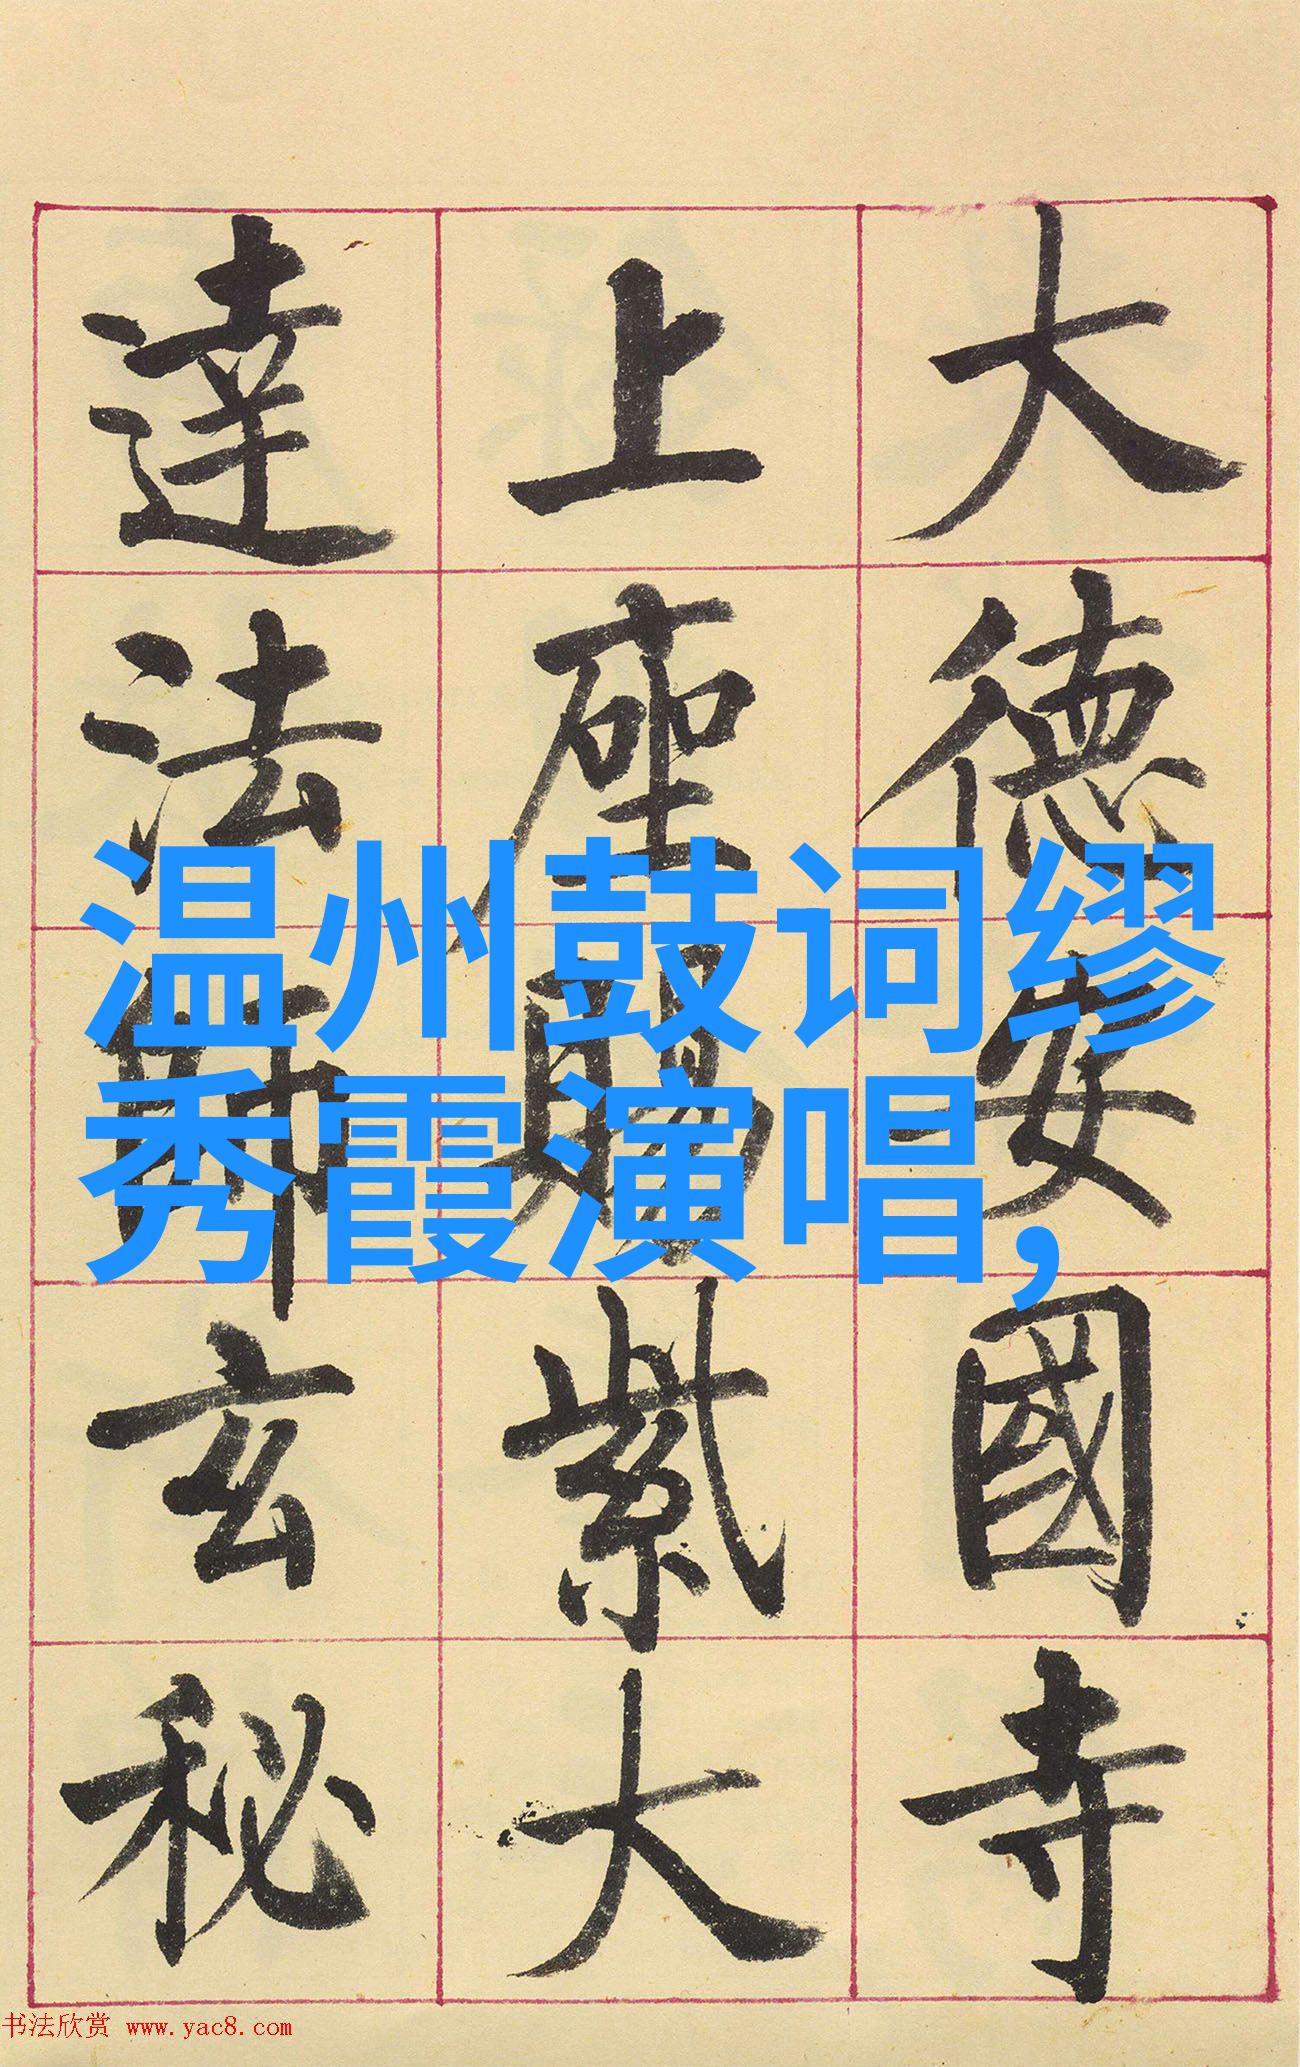 大德安國寺
上座賜紫大
達法師玄秘
温州鼓词缪
秀霞演唱,
书法欣赏 www.yac8.com